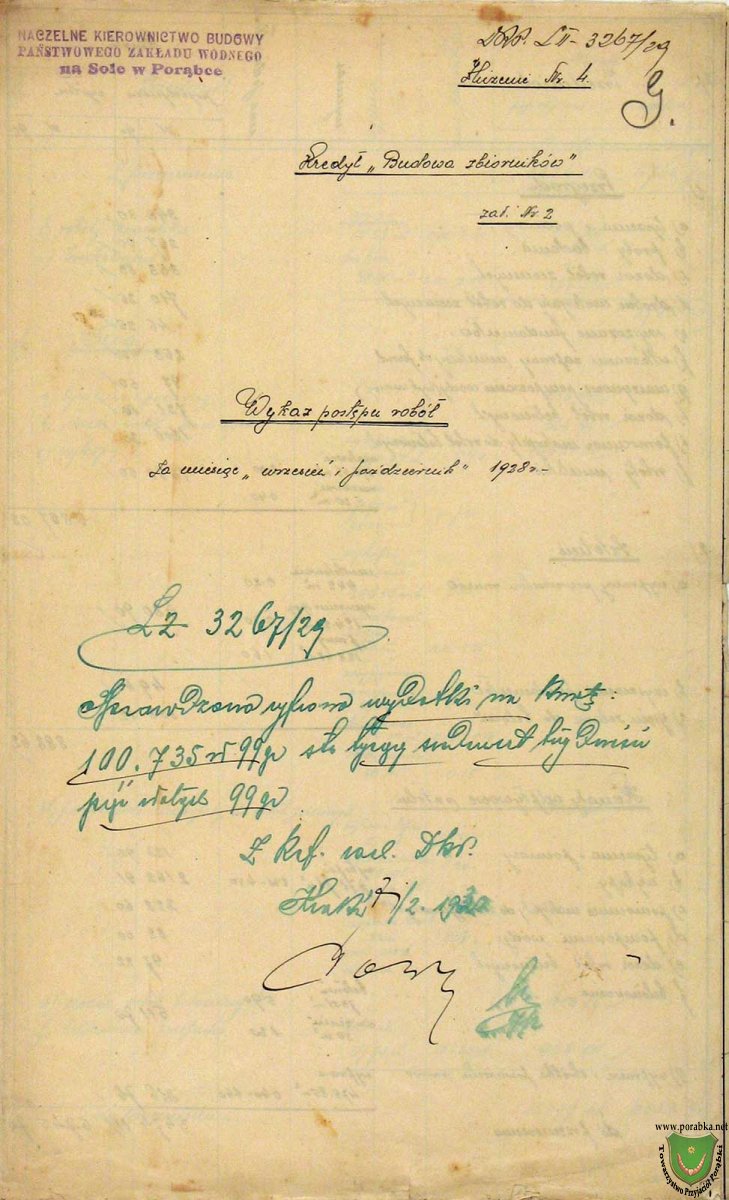 NACZELNE KIEROWNICTWO BUDOWY
PAŃSTWOWEGO ZAKŁADU WODNEGO
na Sole w Porąbce
3267/29
Nr. 4.
G.
Kredyt „Budowa zbiorników"
zał. Nr 2
Wykaz postępu robót
za miesiąc „wrzesień i październik" 1928 r.
LZ 3267/29
Sprawdzono wydatki na kwotę:
100.735 zł 99 gr sto tysięcy siedmset trzydzieści
pięć złotych 99 gr
Z Ref.
/2. 19
www.porabka.net
Towarzystwo Przyjaciół Porąbki